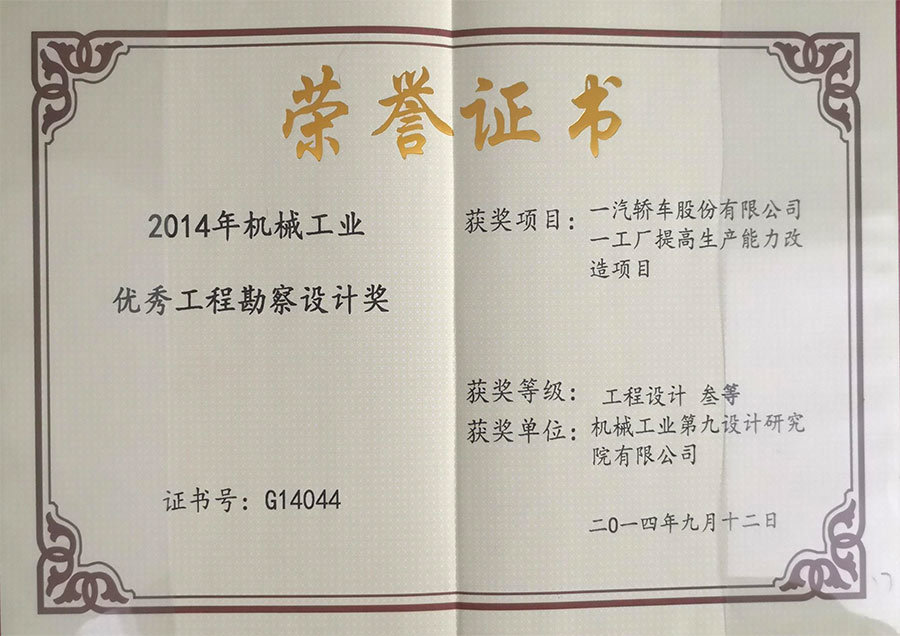 荣誉证书
2014年机械工业
优秀工程勘察设计奖
证书号：G14044
获奖项目：一汽轿车股份有限公司
一工厂提高生产能力改
造项目
获奖等级：工程设计 叁等
获奖单位：机械工业第九设计研究
院有限公司
二0一四年九月十二日